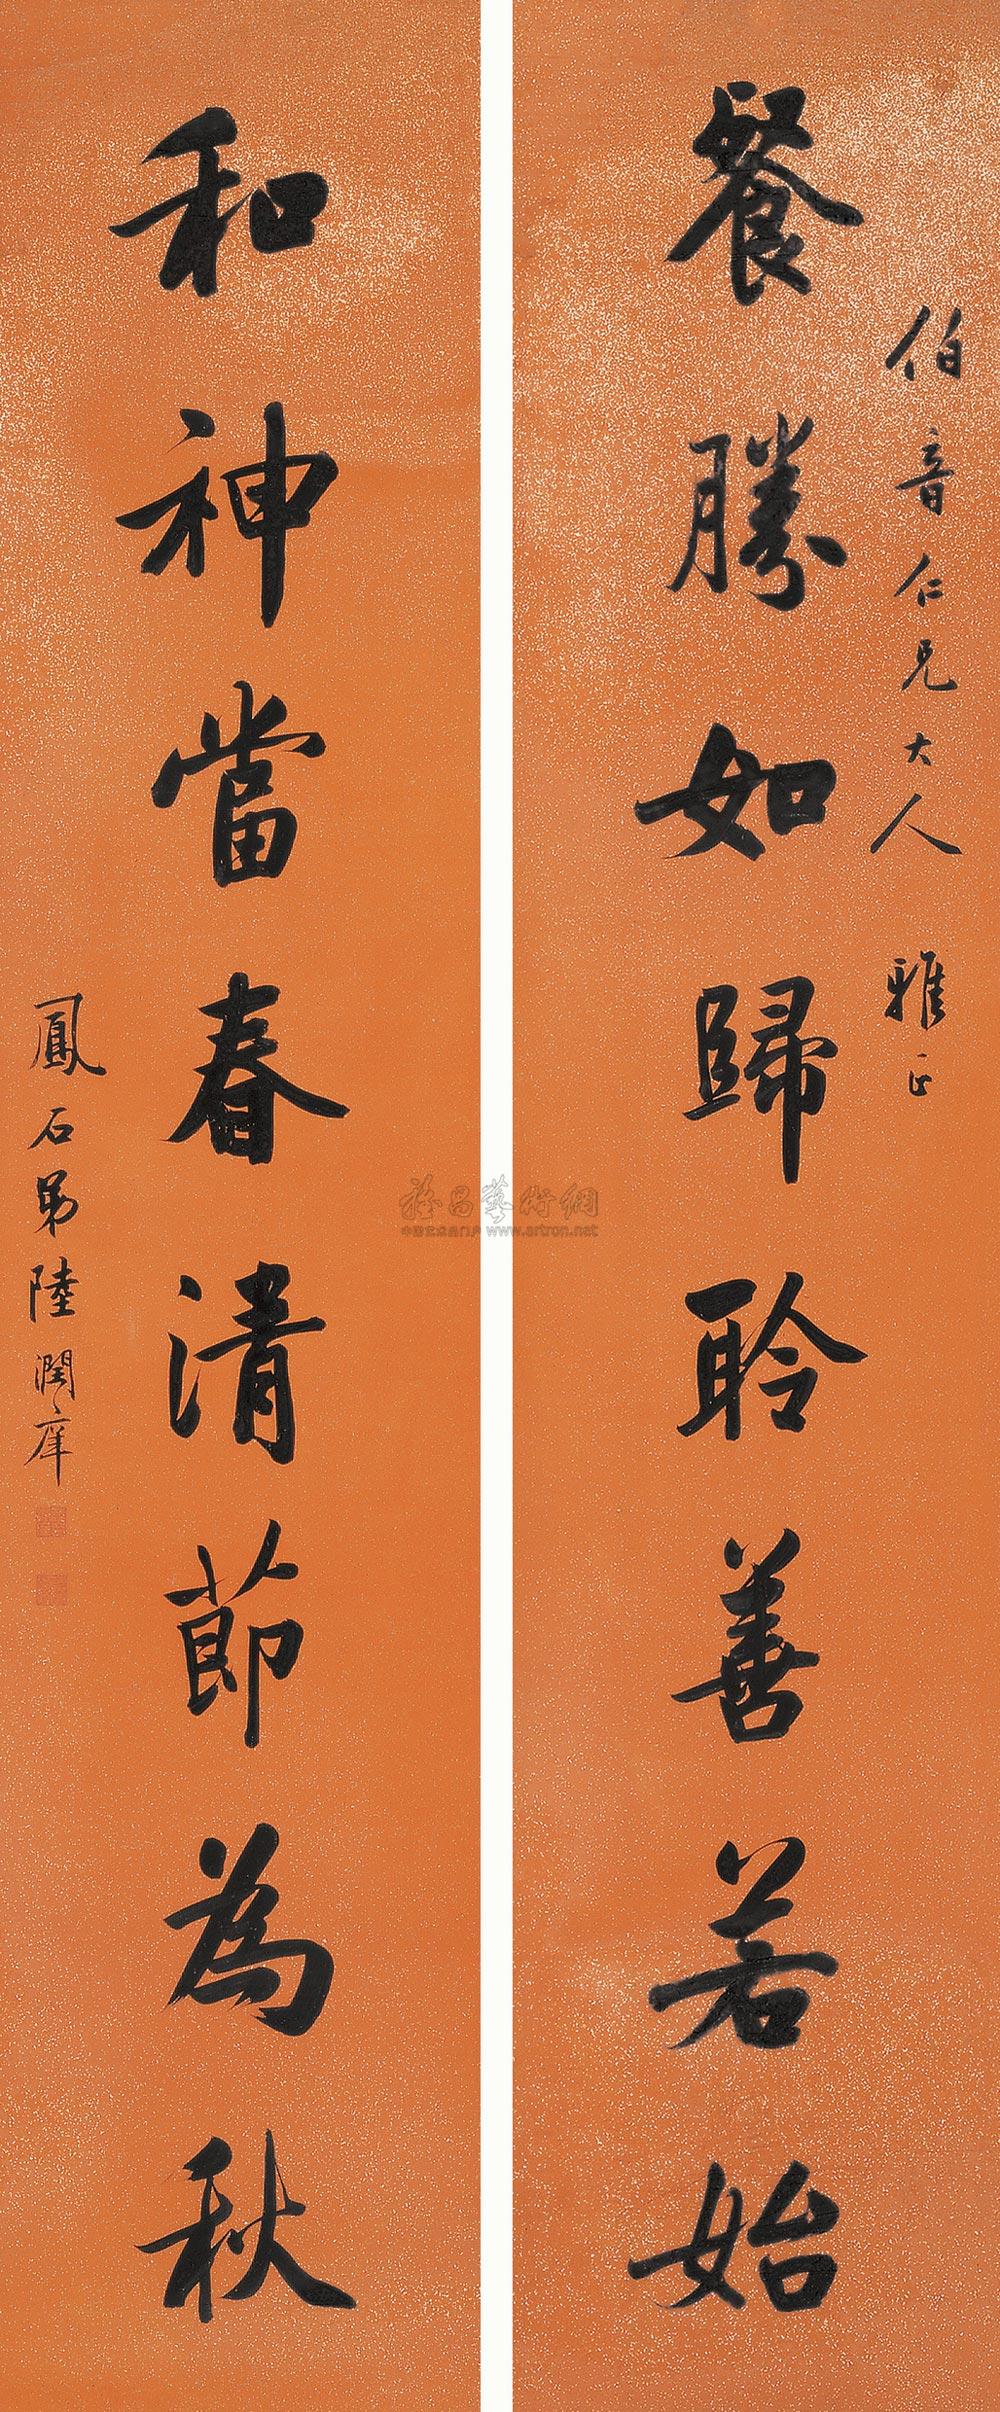 伯音仁兄大人 雅正
餐勝如歸聆善若始
和神當春清節為秋
鳳石弟陸潤庠
雅昌藝術網
中国艺术品门户 www.artron.net